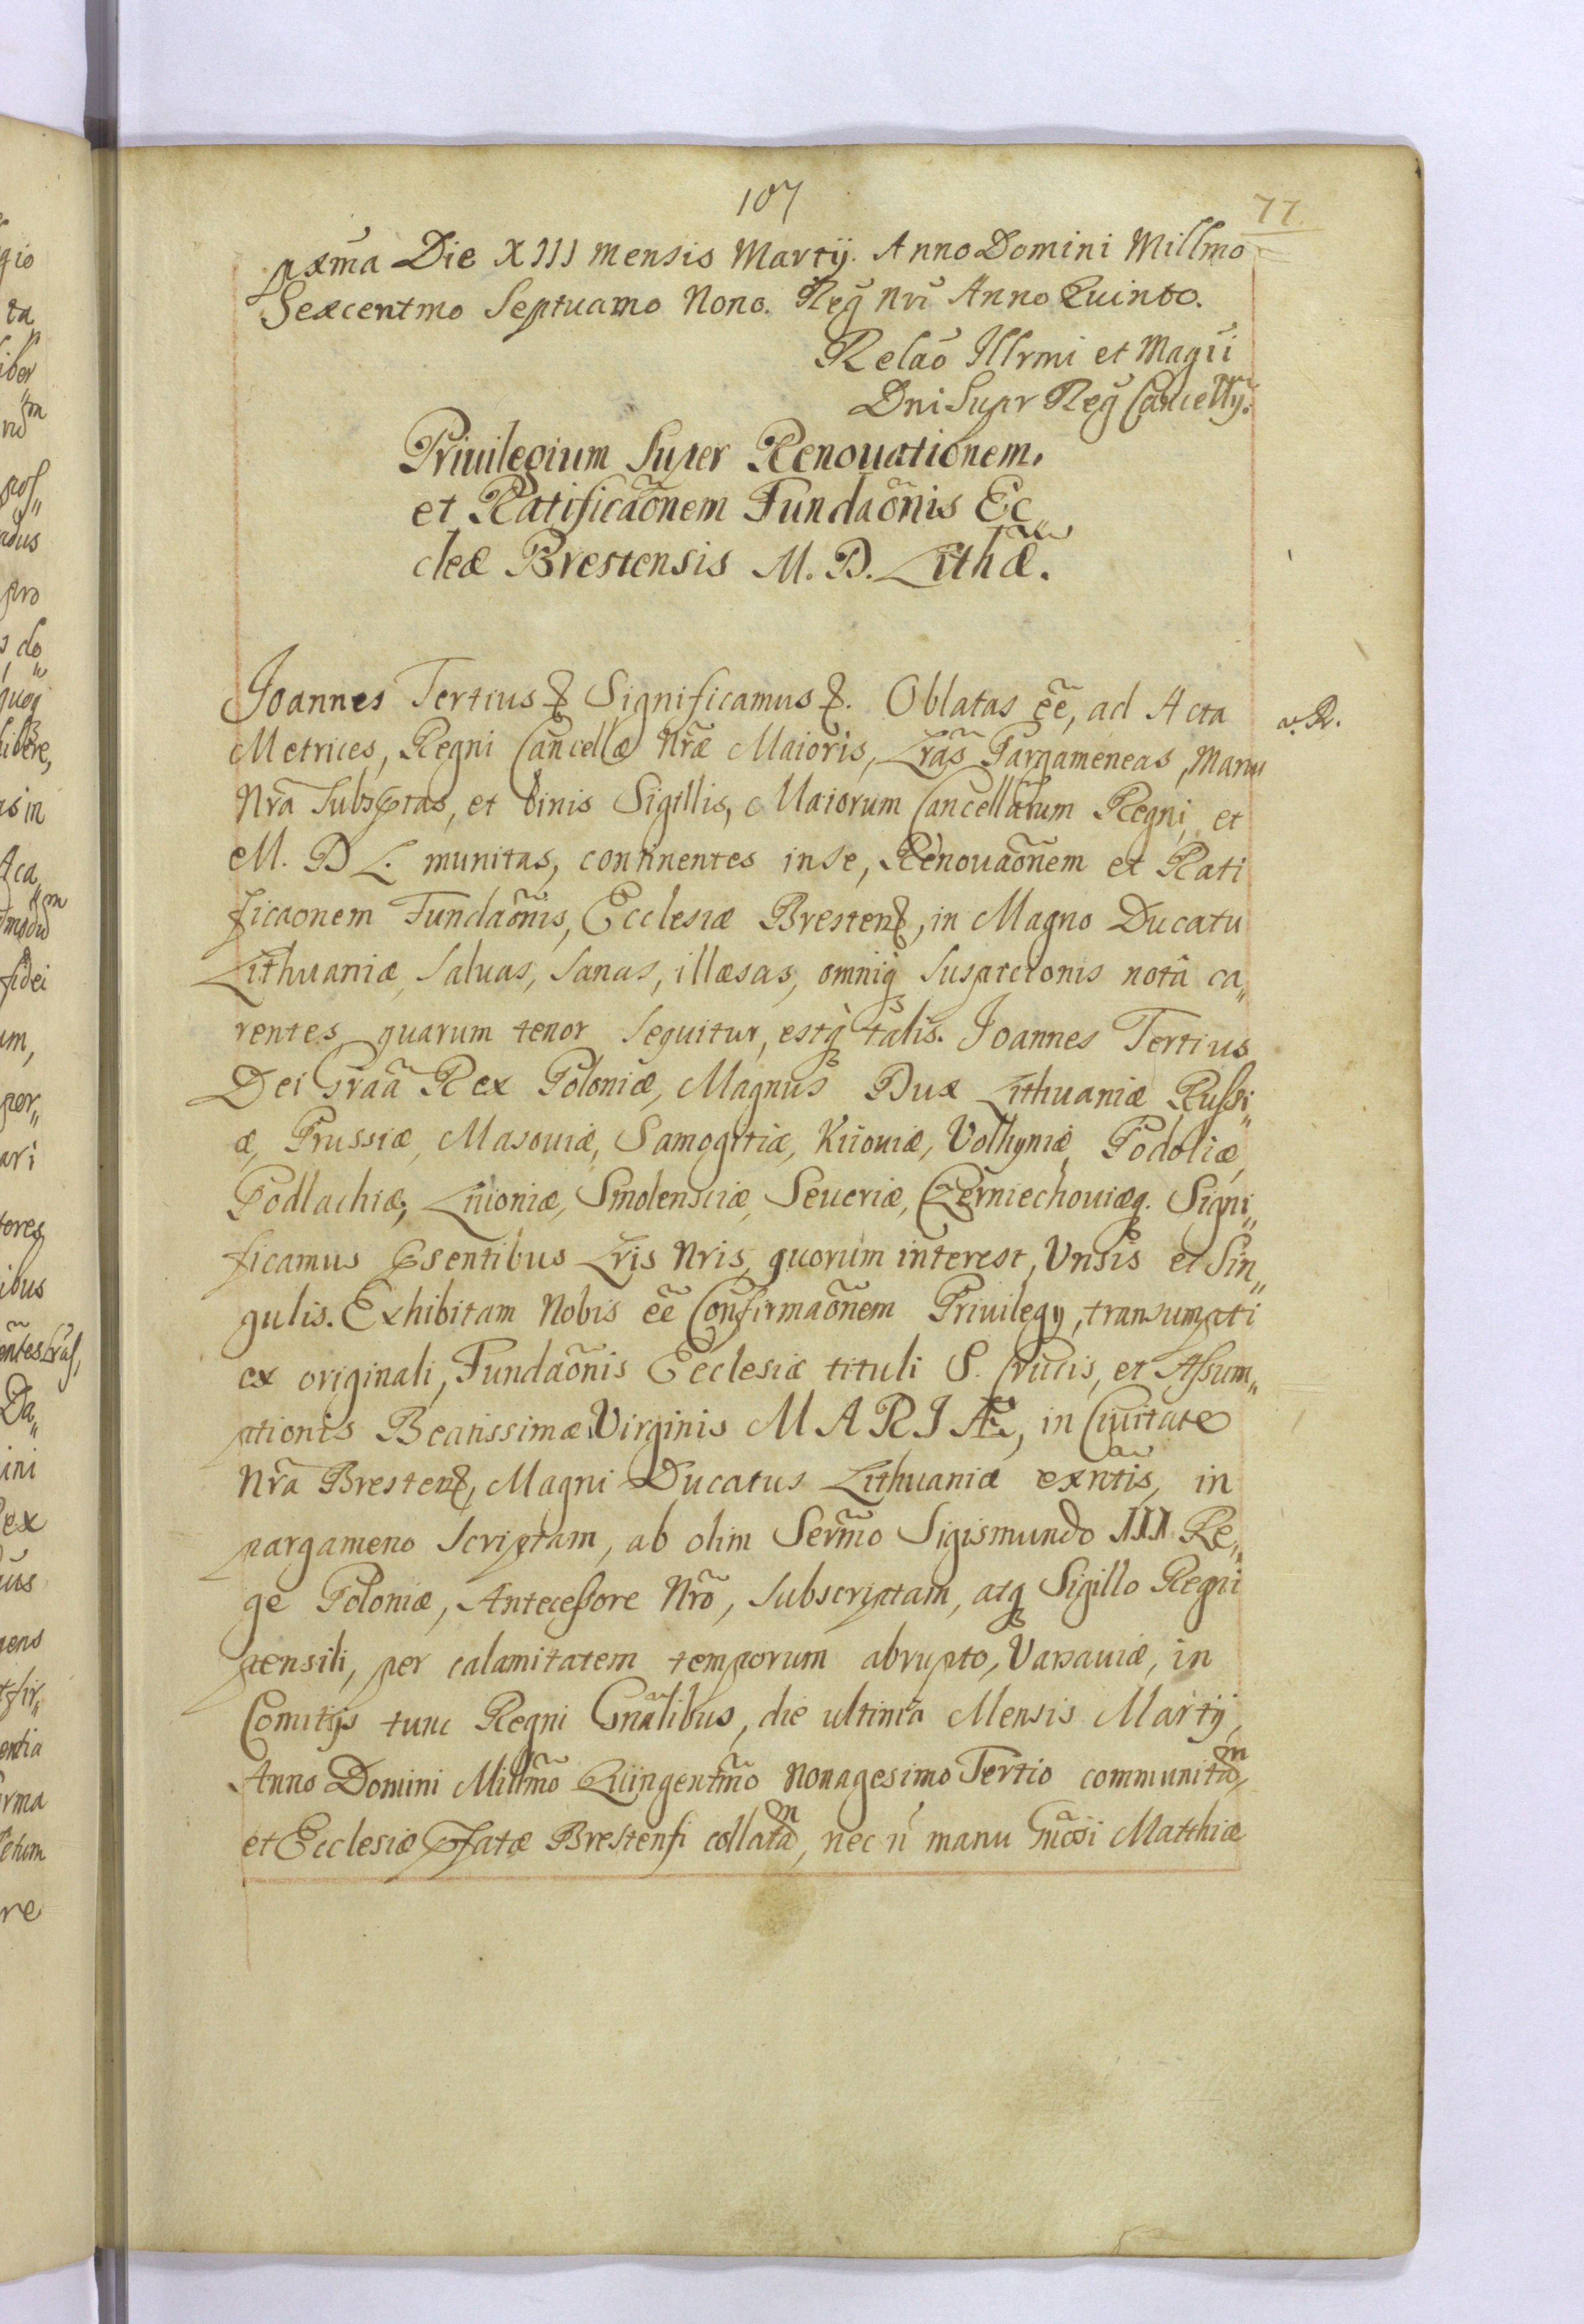 107
77.
pxm̃a Die XIII mensis Martij. Anno Domini Millmo
Sexcentmo Septuamo Nono. Reg̃ nri Anno Quinto.
Relaõ Illrmi et Magñi
Dni Supr Reg̃ Cancellrÿ.
Priuilegium Super Renouationem.
et Ratificaõnem Fundaõnis Ec„
cleæ Brestensis M. D. Lithæ.
Joannes Tertius & Significamus &. Oblatas eẽ, ad Acta
v. R.
Metrices, Regni Cancellæ Nr̃æ Maioris, Lr̃as Pargameneas, manu
Nr̃a Subsptas, et binis Sigillis, Maiorum Cancellarum Regni, et
M. D L. munitas, continentes in se, Renouaõnem et Rati
ficaonem Fundaõnis, Ecclesiæ Bresten&, in Magno Ducatu
Lithuaniæ, saluas, sanas, illæsas, omniq; suspicionis notâ ca„
rentes, quarum tenor sequitur, estq; talis. Joannes Tertius
Dei Graã Rex Poloniæ, Magnus Dux Lithuaniæ Russi„
æ, Prussiæ, Masouiæ, Samogitiæ, Kiiouiæ, Volhyniæ, Podoliæ,
Podlachiæ, Liuoniæ, Smolensciæ, Seueriæ, Czerniechouiæq;. Signi„
ficamus Psentibus Lris Nris, quorum interest, Vnsis et Sin„
gulis. Exhibitam Nobis eẽ Confirmaõnem Priuilegij, transumpti
ex originali, Fundaõnis Ecclesiæ tituli S. Crucis, et Assum„
ptionis Beatissimæ Virginis MARIÆ, in Ciuitate
Nr̃a Bresten&, Magni Ducatus Lithuaniæ exntis, in
pargameno scriptam, ab olim Serm̃o Sigismundo III Re„
ge Poloniæ, Antecessore Nrõ, subscriptam, atq; Sigillo Regni
pensili, per calamitatem temporum abrupto, Varsauiæ, in
Comitijs tunc Regni Gnãlibus, die ultima Mensis Martij,
Anno Domini Millm̃o Quingentm̃o Nonagesimo Tertio communitam,
et Ecclesiæ Pfatæ Brestensi collatam, nec ñ manu Gñosi Matthiæ